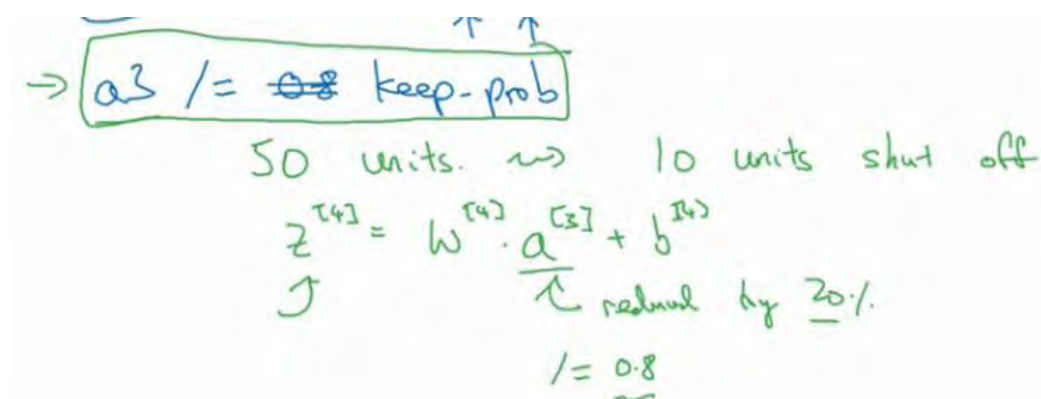 → a3 /= ~~0.8~~ keep-prob
50 units. ⇝ 10 units shut off
z^[4] = W^[4] · a^[3] + b^[4]
reduced by 20%.
/= 0.8